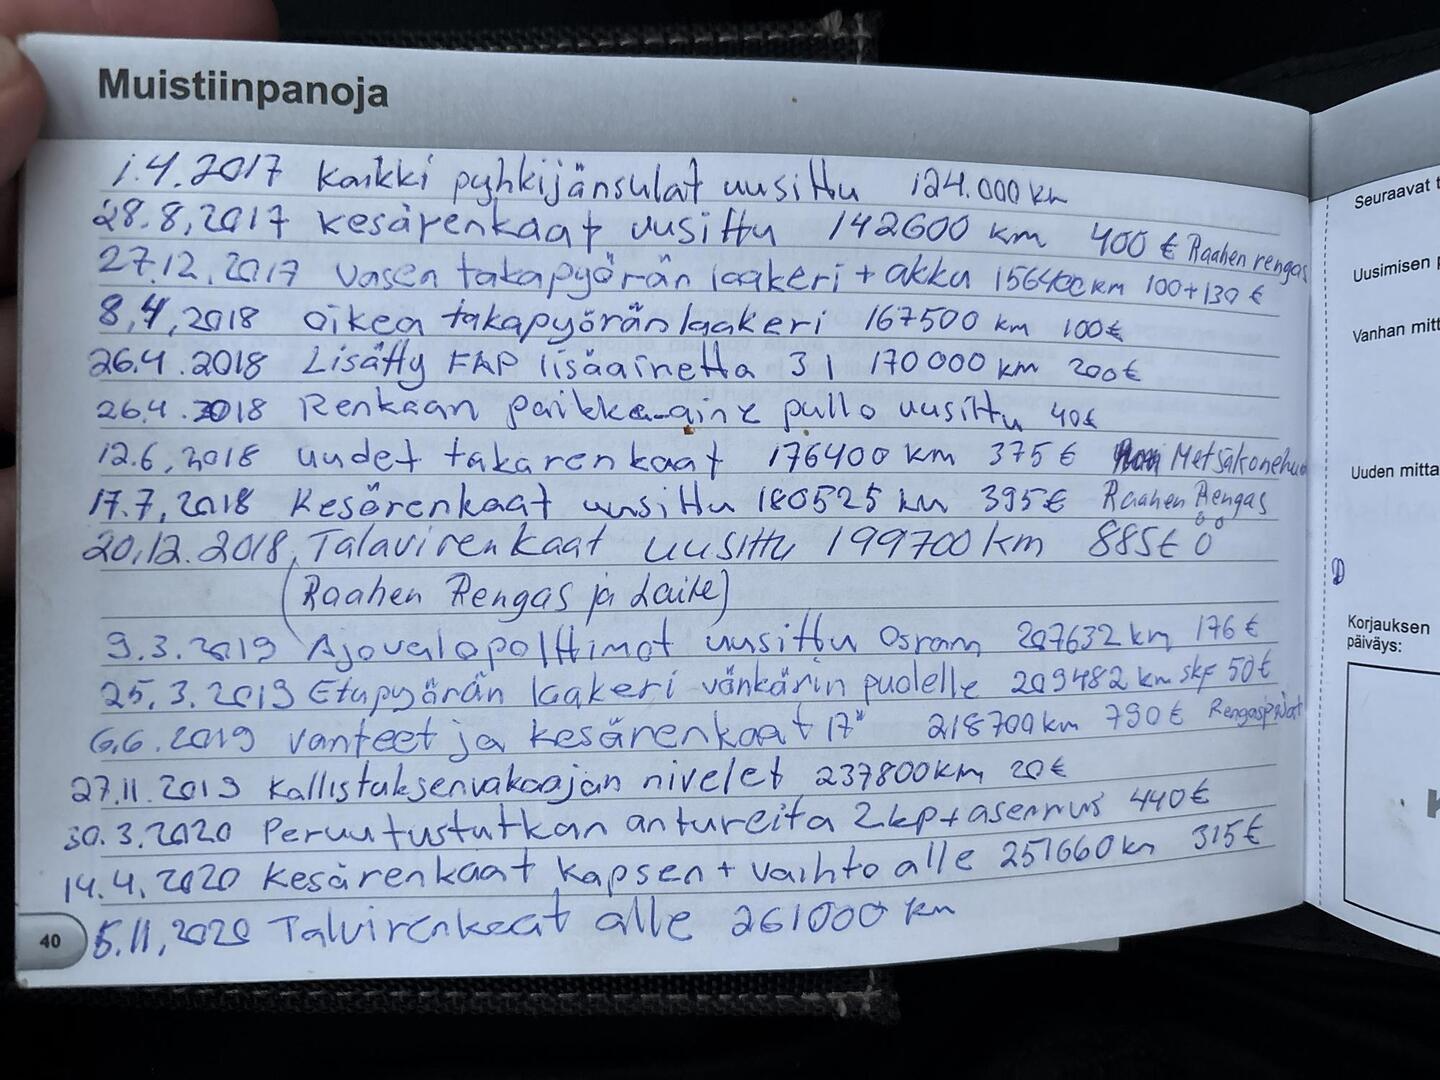 Muistiinpanoja
1.4.2017 Kaikki pyhkijänsulat uusittu 124.000 km
28.8.2017 Kesärenkaat uusittu 142600 km 400 € Raahen rengas
27.12.2017 Vasen takapyörän laakeri + akku 156400 km 100+130 €
8.4.2018 Oikea takapyörän laakeri 167500 km 100€
26.4.2018 Lisätty FAP lisäainetta 3 l 170000 km 200€
26.4.2018 Renkaan paikka-aine pullo uusittu 40€
12.6.2018 uudet takarenkaat 176400 km 375 €
17.7.2018 Kesärenkaat uusittu 180525 km 395€ Raahen Rengas
20.12.2018 Talavirenkaat uusittu 199700 km 885€
(Raahen Rengas ja Laite)
9.3.2019 Ajovalopolttimot uusittu Osram 207632 km 176 €
25.3.2019 Etupyörän laakeri vänkärin puolelle 209482 km skf 50€
6.6.2019 Vanteet ja kesärenkaat 17" 218700km 790€
27.11.2019 Kallistuksenvakaajan nivelet 237800km 20€
30.3.2020 Peruutustutkan antureita 2kp + asennus 440€
14.4.2020 Kesärenkaat Kapsen + vaihto alle 251660 km 315€
5.11.2020 Talvirenkaat alle 261000 km
40
Seuraavat
Uusimisen
Vanhan
Uuden
Korjauksen
päiväys: